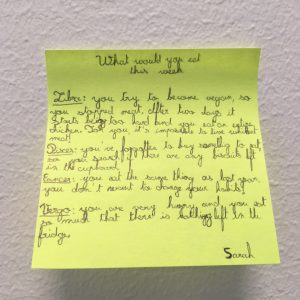 What would you eat
this week
Libra: you try to become vegan, so
you stopped meat, after two days it
starts being too hard and you eat an entire
chicken. Told you it's impossible to live without
meat
Pisces: you've forgotten to buy something to eat,
so you search if there are any biscuit left
in the cupboard
Cancer: you eat the same thing as last year,
you don't want to change your habits
Virgo: you are very hungry and you eat
so much that there is nothing left in the
fridge
Sarah